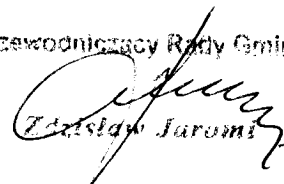 zewodniczący Rady Gmin
Zdzisław Jaromi